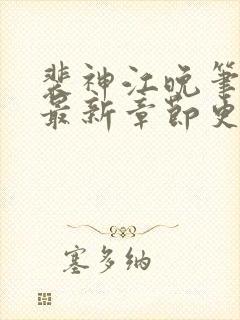 裴神江晚笔
最新章节史
塞多纳